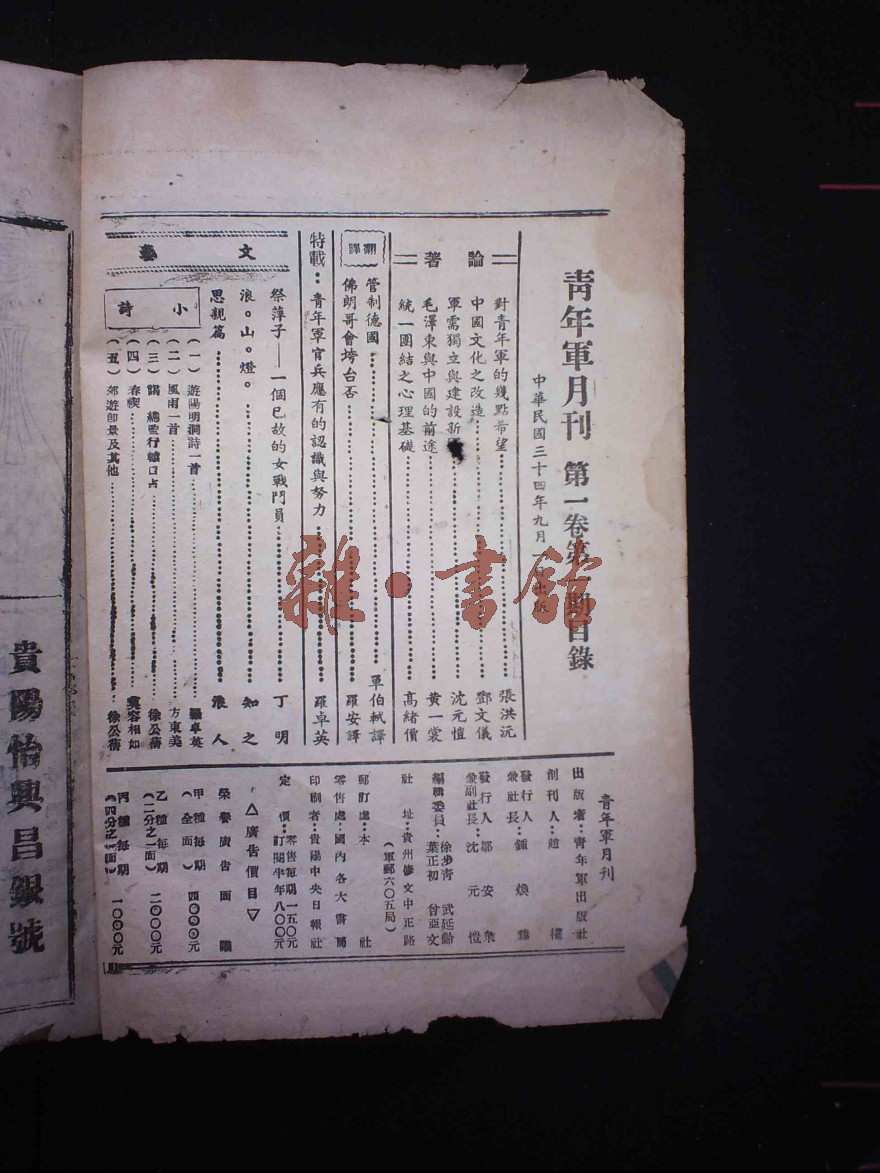 青年軍月刊 第一卷第一期目錄
中華民國三十四年九月一日出版
論著
對青年軍的幾點希望 張洪沅
中國文化之改造 鄧文儀
軍需獨立與建設新 沈元愷
毛澤東與中國的前途 黃一裳
統一團結之心理基礎 高緒價
翻譯
管制德國 軍伯軾譯
佛朗哥會垮台否 羅安譯
特載：青年軍官兵應有的認識與努力 羅卓英
文藝
祭萍子——一個已故的女戰鬥員 丁明
浪。山。燈。 知之
思親篇 浪人
小詩
（一）遊陽明洞詩一首 羅卓英
（二）風雨一首 方東美
（三）謁 總理行轅口占 徐公
（四）春禊 容相如
（五）郊遊即景及其他 徐公
青年軍月刊
出版者：青年軍出版社
創刊人：趙 權
發行人兼社長：鍾煥
發行人兼副社長：鄒安眾 沈元愷
編輯委員：徐步青 武延齡 葉正初 曾亞文
社址：貴州修文中正路
（軍郵六〇五局）
郵訂處：本社
零售處：國內各大書局
印刷者：貴陽中央日報社
定價：零售每期一五〇元 訂閱半年八〇〇元
△廣告價目▽
榮譽廣告面議
甲種每期（全面）四〇〇〇元
乙種每期（二分之一面）二〇〇〇元
丙種每期（四分之一面）一〇〇〇元
貴陽怡興昌銀號
雜·書館